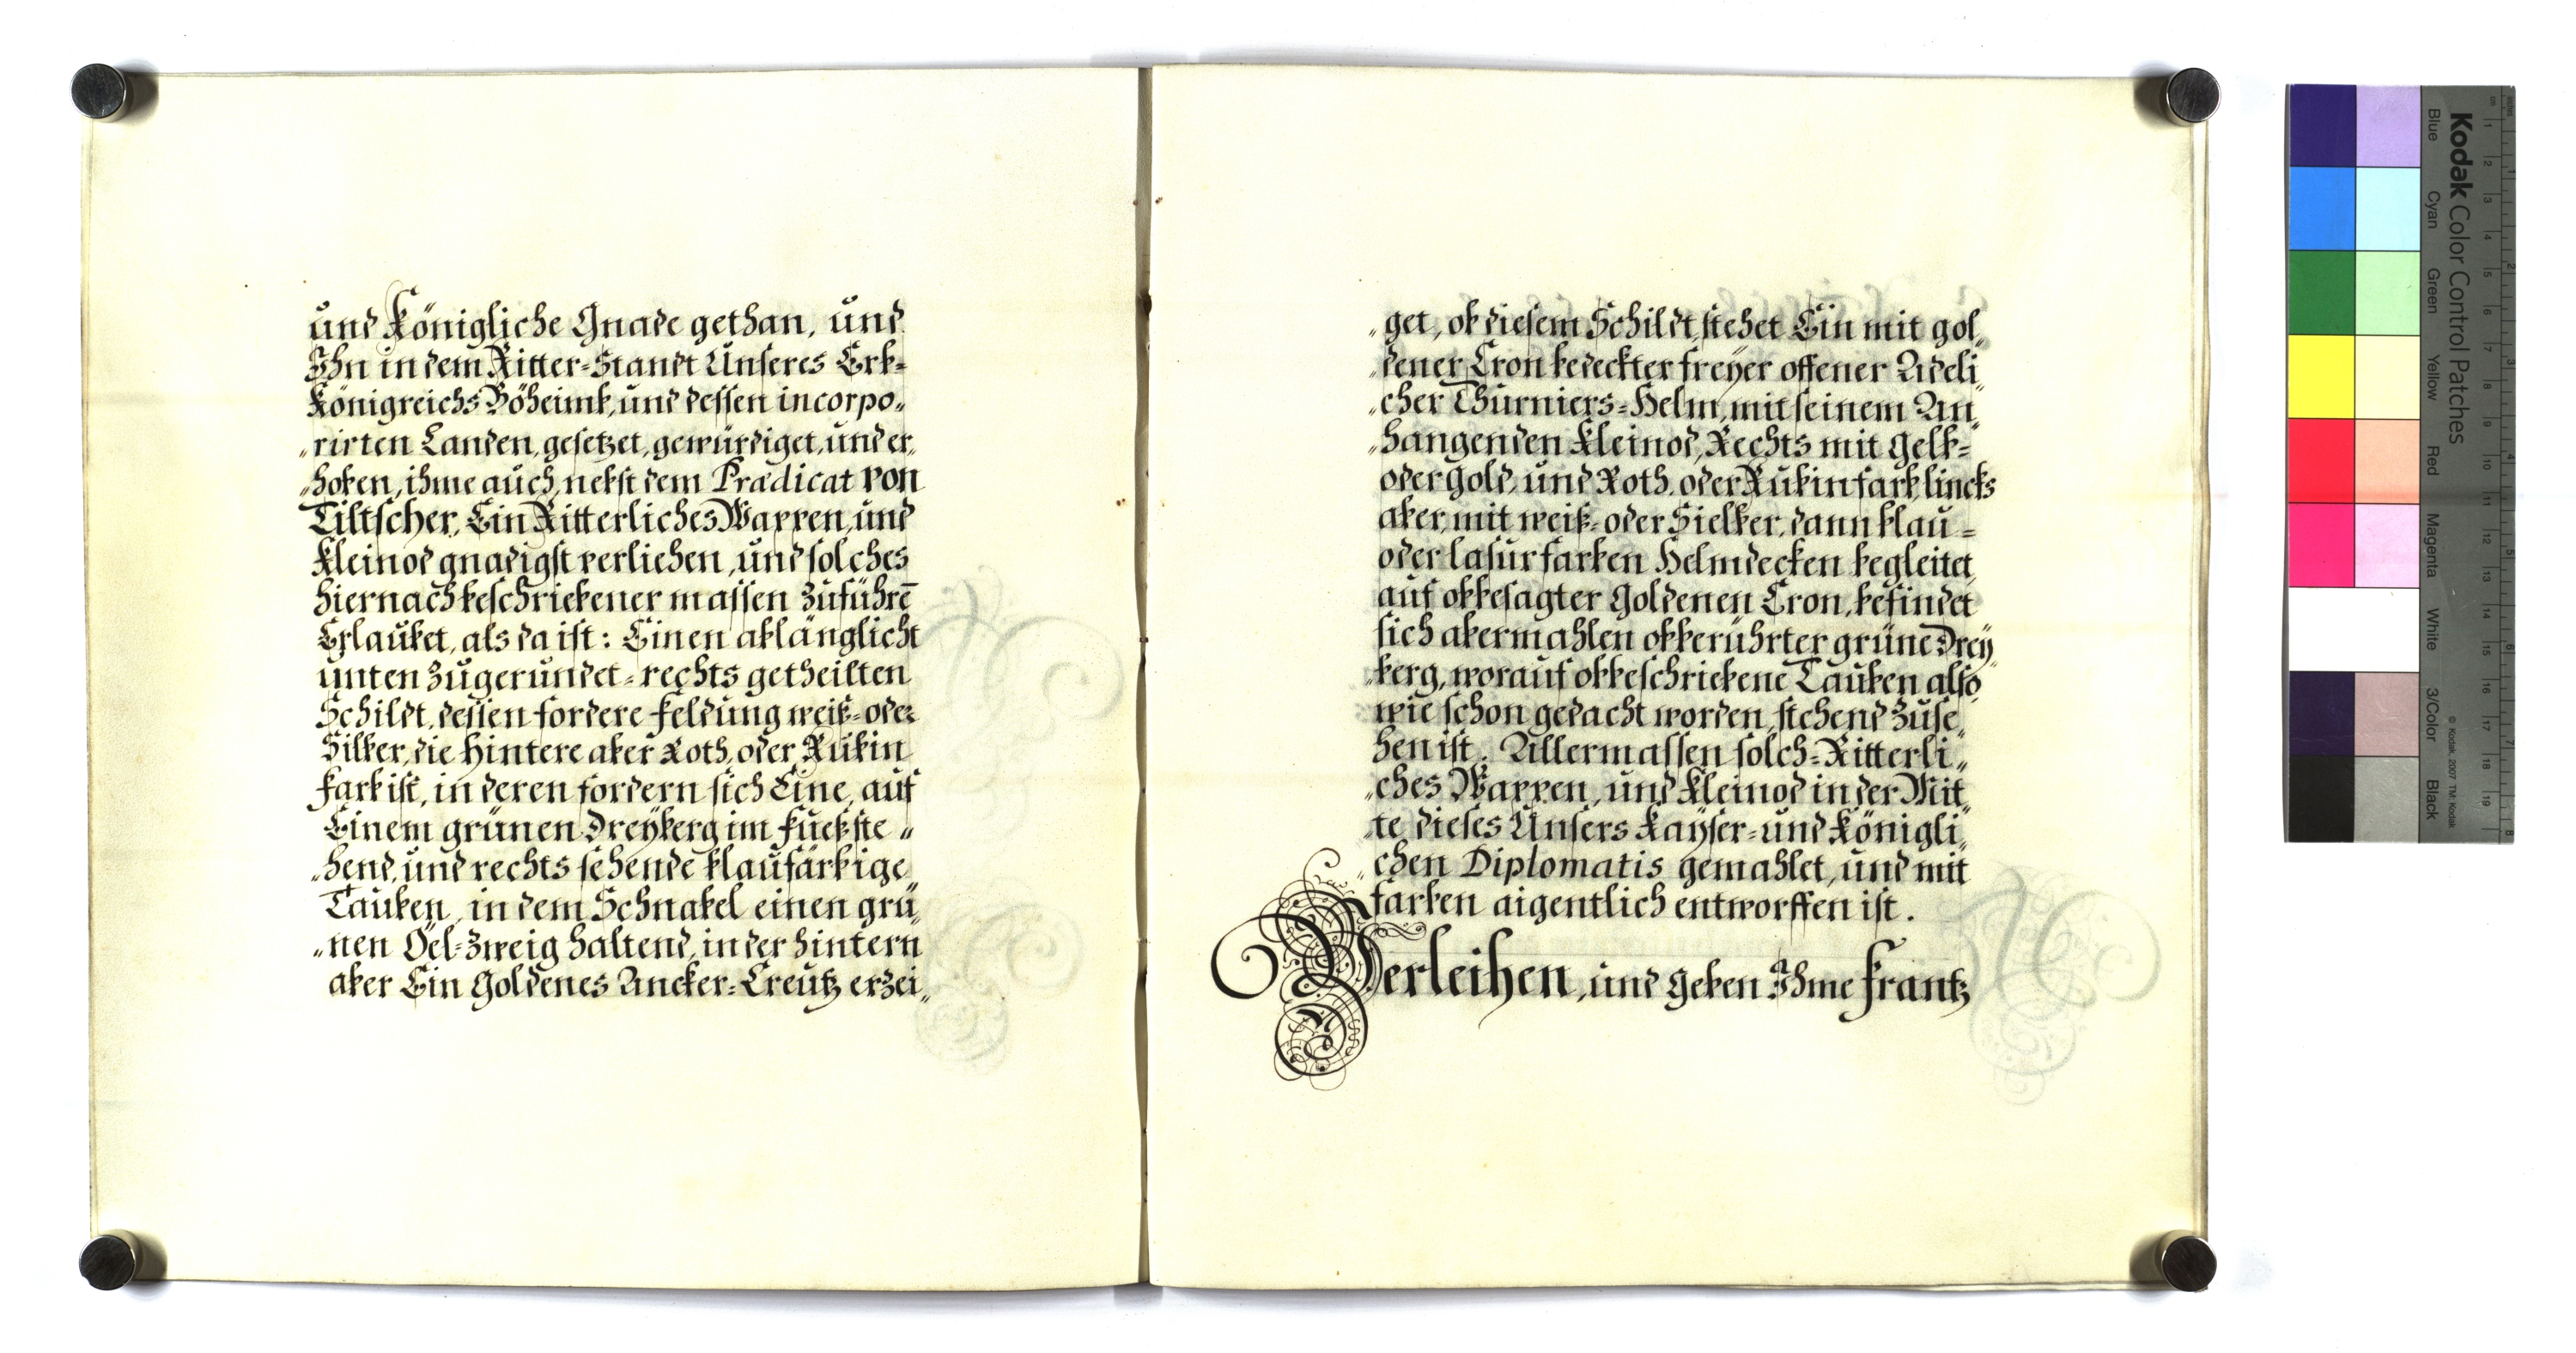 und Königliche Gnade gethan, und
Ihn in dem Ritter=Standt Unseres Erb=
Königreichs Böheimb, und dessen incorpo„
„rirten Landen, gesetzet, gewürdiget, und er„
„hoben, ihme auch, nebst dem Prædicat von
Tiltscher, Ein Ritterliches Wappen, und
Kleinod gnädigst verliehen, und solches
hiernach beschriebener massen zuführē
Erlaubet, als da ist: Einen ablänglicht
unten zugerundet=rechts getheilten
Schildt, dessen fordere Feldung weiß=oder
Silber, die Hintere aber Roth, oder Rubin
farb ist, in deren fordern sich Eine, auf
Einem grünen Dreyberg im Fueß ste„
„hend, und rechts sehende blaufärbige
Tauben, in dem Schnabel einen grü„
„nen Öel=Zweig haltend, in der hintern
aber Ein Goldenes Ancker=Creutz erzei„
„get, ob diesem Schildt, stehet Ein mit gol„
„dener Cron bedeckter freyer offener Adeli„
„cher Thurniers=Helm, mit seinem An„
„hangenden Kleinod, Rechts mit Gelb=
oder gold, und Roth, oder Rubinfarb, lincks
aber, mit weiß=oder Sielber, dann blau=
oder lasurfarben Helmdecken begleitet,
auf obbesagter Goldenen Cron, befindet
sich abermahlen obberührter grüne Drey„
„berg, worauf obbeschriebene Tauben also,
wie schon gedacht worden, stehend zuse„
hen ist. Allermassen solch=Ritterli„
„ches Wappen, und Kleinod in der Mit„
„te dieses Unsers Kayser=und Königli„
„chen Diplomatis gemahlet, und mit
farben aigentlich entworffen ist.
Verleihen, und Geben Ihme Frantz
Kodak Color Control Patches
Blue
Cyan
Green
Yellow
Red
Magenta
White
3/Color
Black
© Kodak, 2007 TM: Kodak
1
2
3
4
5
6
7
8
9
10
11
12
13
14
15
16
17
18
19